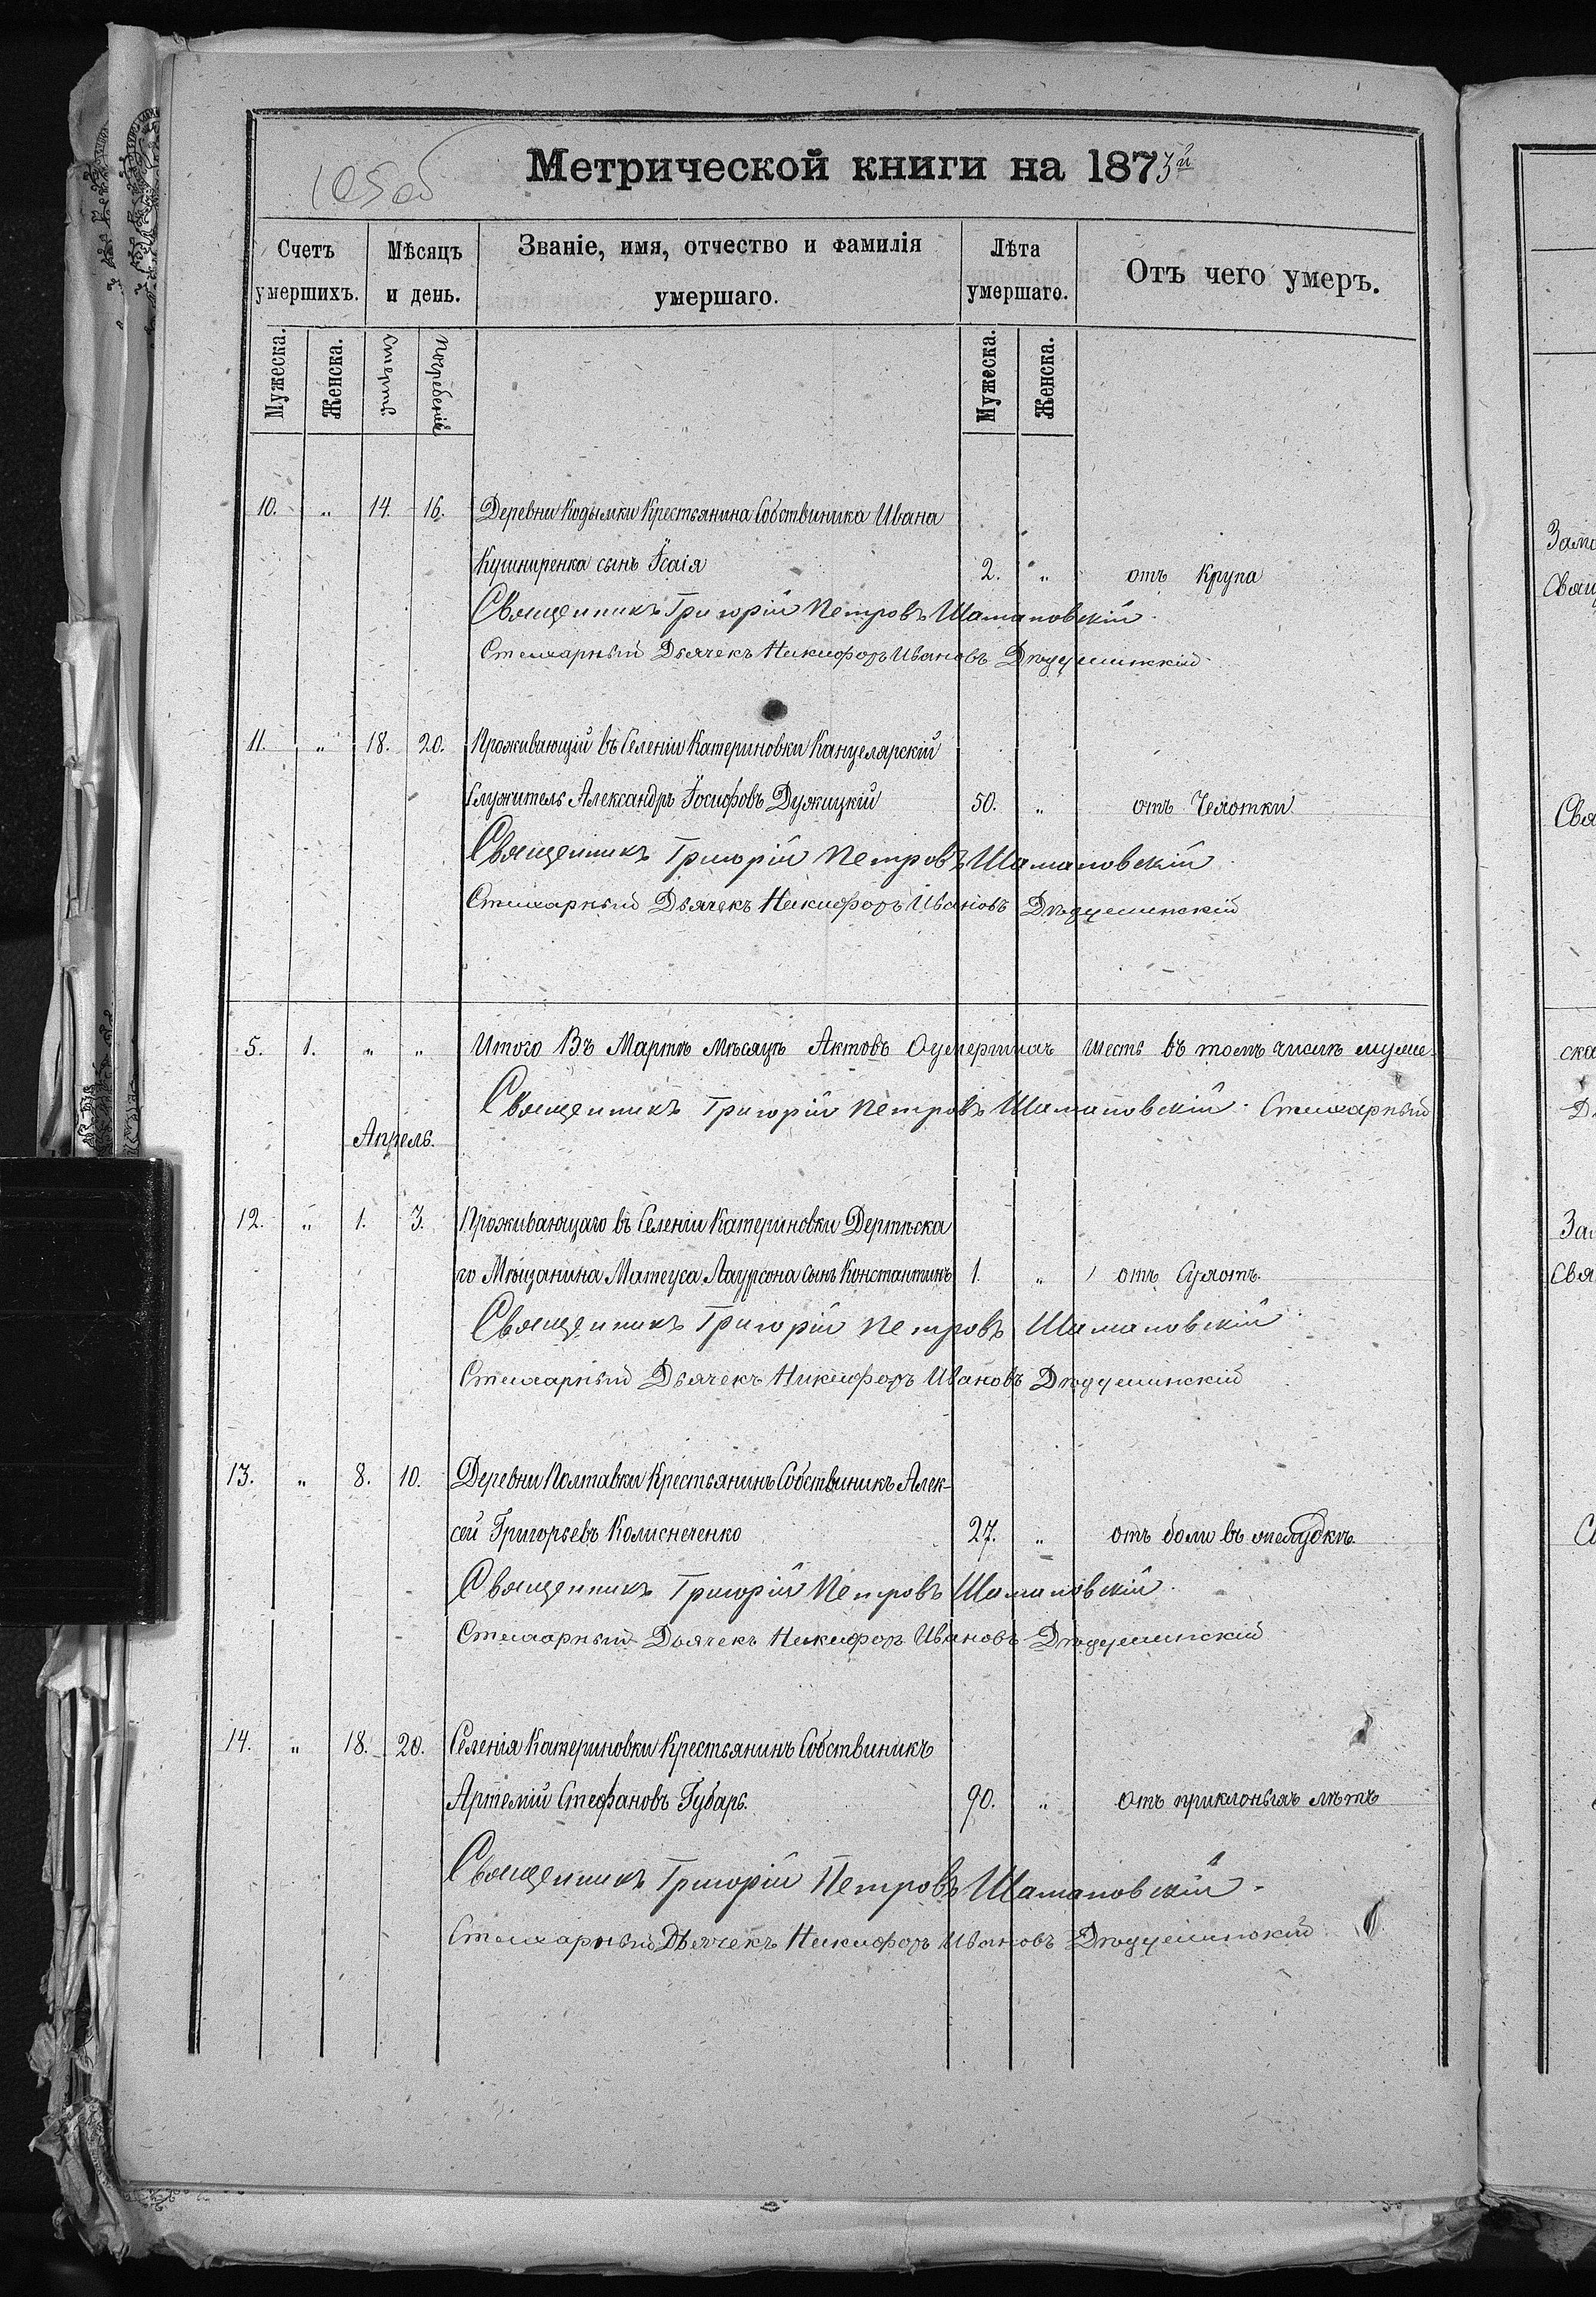 105 об
Метрической книги на 1873й
Счетъ умершихъ. Мѣсяцъ и день. Званіе, имя, отчество и фамилія умершаго. Лѣта умершаго. Отъ чего умеръ.
Мужеска. Женска. Смерти Погребенія Мужеска. Женска.
10. " 14. 16. Деревни Кодымки Крестьянина Собствиника Ивана
Кушниренка сынъ Ісаія 2. " отъ Крупа
Священникъ Григорій Петровъ Шамановскій
Стихарный Дьячекъ Никифоръ Ивановъ
11. " 18. 20. Проживающій въ Селеніи Катериновки Канцелярскій
Служитель Александръ Іосифовъ Дужицкій 50. " отъ Чехотки
Священникъ Григорій Петровъ Шамановскій
Стихарный Дьячекъ Никифоръ Ивановъ
5. 1. " " Итого Въ Мартѣ мѣсяцѣ Актовъ Оумершихъ шесть въ томъ числѣ муже-
Священникъ Григорій Петровъ Шамановскій. Стихарный
Апрель.
12. " 1. 3. Проживающаго въ Селеніи Катериновки Дерптска
го Мѣщанина Матеуса Лаурсона сынъ Константинъ 1. " отъ Сухотъ.
Священникъ Григорій Петровъ Шамановскій
Стихарный Дьячекъ Никифоръ Ивановъ
13. " 8. 10. Деревни Полтавки Крестьянинъ Собствиникъ Алек-
сей Григорьевъ Колиснеченко 27. " отъ боли въ желудкѣ.
Священникъ Григорій Петровъ Шамановскій
Стихарный Дьячекъ Никифоръ Ивановъ
14. " 18. 20. Селенія Катериновки Крестьянинъ Собствиникъ
Артемій Стефановъ Губарь. 90. " отъ приклоныхъ лѣтъ
Священникъ Григорій Петровъ Шамановскій.
Стихарный Дьячекъ Никифоръ Ивановъ